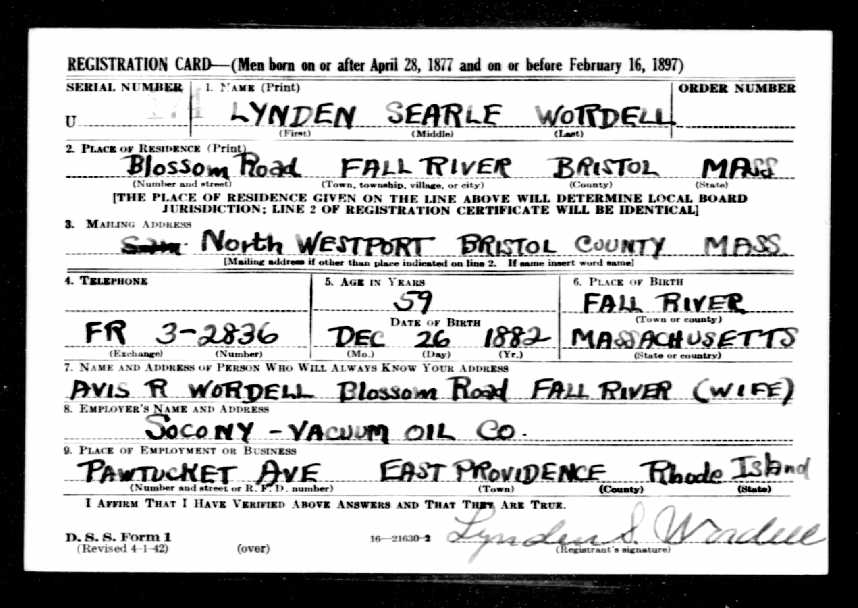 REGISTRATION CARD—(Men born on or after April 28, 1877 and on or before February 16, 1897)
SERIAL NUMBER 1. NAME (Print) ORDER NUMBER
U LYNDEN SEARLE WORDELL
(First) (Middle) (Last)
2. PLACE OF RESIDENCE (Print)
Blossom Road FALL RIVER BRISTOL MASS
(Number and street) (Town, township, village, or city) (County) (State)
[THE PLACE OF RESIDENCE GIVEN ON THE LINE ABOVE WILL DETERMINE LOCAL BOARD
JURISDICTION; LINE 2 OF REGISTRATION CERTIFICATE WILL BE IDENTICAL]
3. MAILING ADDRESS
North WESTPORT BRISTOL COUNTY MASS
[Mailing address if other than place indicated on line 2. If same insert word same]
4. TELEPHONE 5. AGE IN YEARS 6. PLACE OF BIRTH
59 FALL RIVER
DATE OF BIRTH (Town or county)
FR 3-2836 DEC 26 1882 MASSACHUSETTS
(Exchange) (Number) (Mo.) (Day) (Yr.) (State or country)
7. NAME AND ADDRESS OF PERSON WHO WILL ALWAYS KNOW YOUR ADDRESS
AVIS R WORDELL Blossom Road FALL RIVER (WIFE)
8. EMPLOYER'S NAME AND ADDRESS
SOCONY-VACUUM OIL CO.
9. PLACE OF EMPLOYMENT OR BUSINESS
PAWTUCKET AVE EAST PROVIDENCE Rhode Island
(Number and street or R. F. D. number) (Town) (County) (State)
I AFFIRM THAT I HAVE VERIFIED ABOVE ANSWERS AND THAT THEY ARE TRUE.
D. S. S. Form 1
(Revised 4-1-42) (over) 16—21630-2 Lynden S. Wordell
(Registrant's signature)